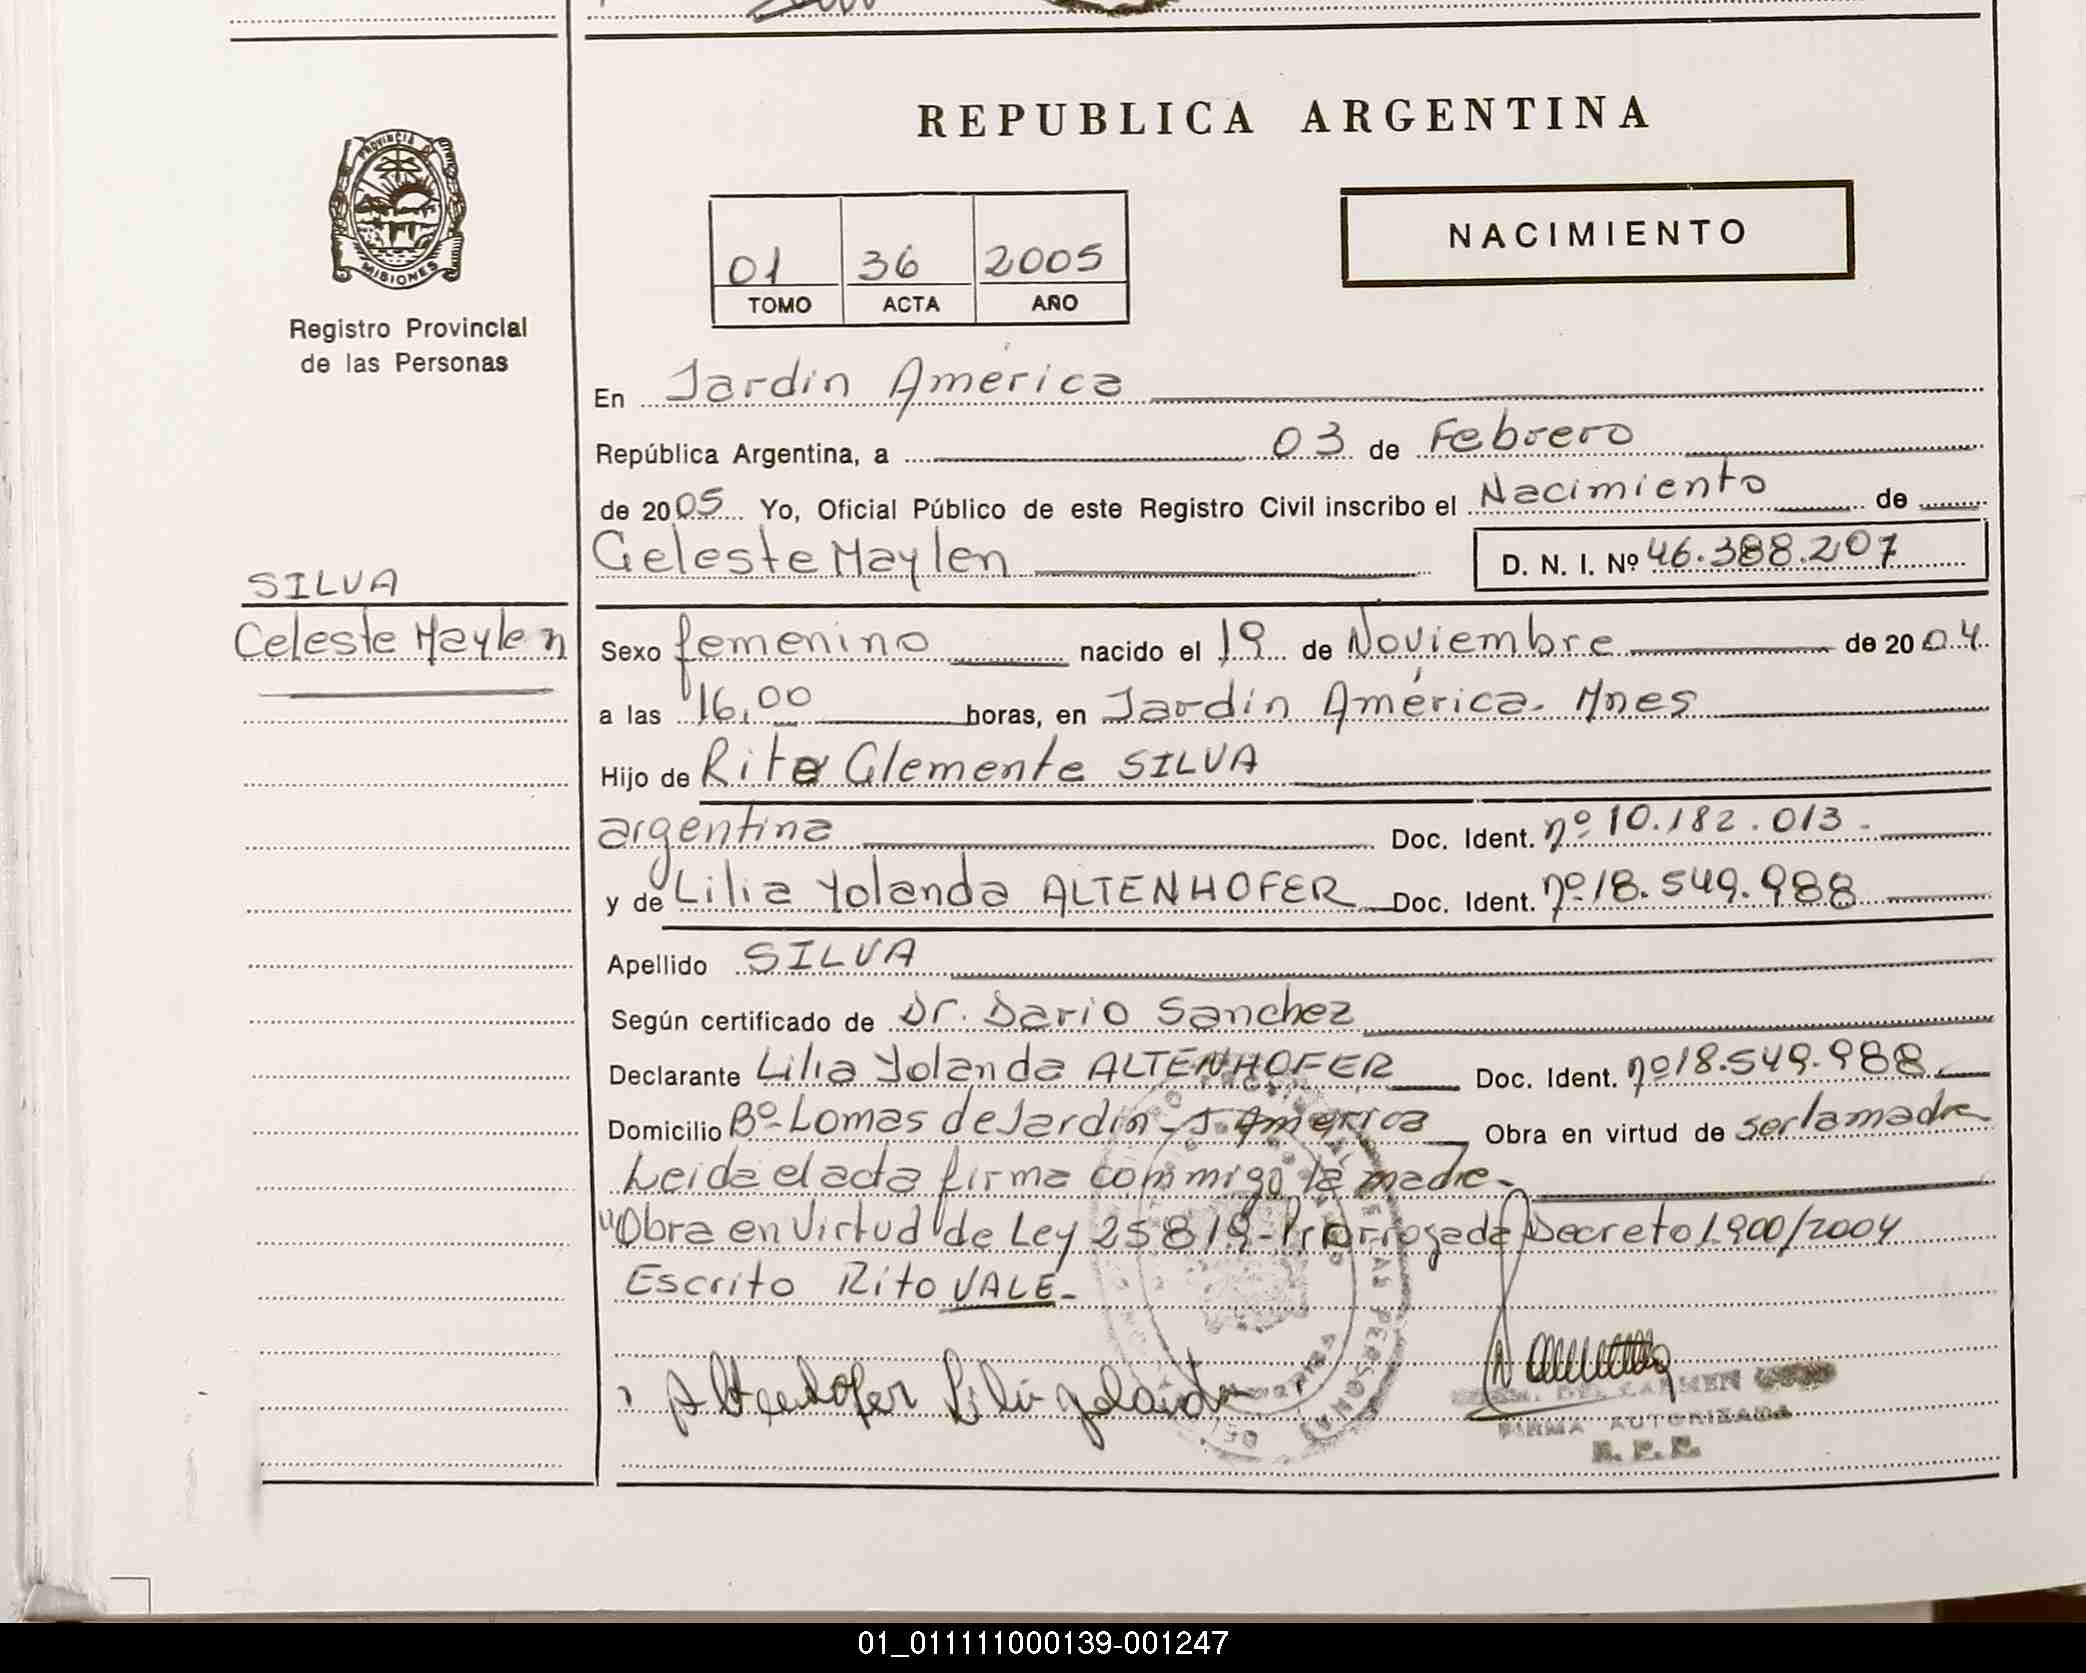 REPUBLICA ARGENTINA
PROVINCIA DE MISIONES
Registro Provincial
de las Personas
NACIMIENTO
01 36 2005
TOMO ACTA AÑO
En Jardín América
República Argentina, a 03 de Febrero
de 2005 Yo, Oficial Público de este Registro Civil inscribo el Nacimiento de
Celeste Maylen D. N. I. Nº 46.388.207
SILVA
Celeste Maylen
Sexo femenino nacido el 19 de Noviembre de 2004
a las 16,00 horas, en Jardín América. Mnes
Hijo de Rito Clemente SILVA
argentina Doc. Ident. nº 10.182.013.
y de Lilia Yolanda ALTENHOFER Doc. Ident. nº 18.549.988
Apellido SILVA
Según certificado de Dr. Dario Sanchez
Declarante Lilia Yolanda ALTENHOFER Doc. Ident. nº 18.549.988
Domicilio Bº- Lomas de Jardín - J. América Obra en virtud de ser la madre
Leida el acta firma commigo la madre-
"Obra en Virtud de Ley 25819-Prorrogada Decreto 1.900/2004
Escrito Rito VALE-
Altenhofer Lilia Yolanda
DEL CARMEN
FIRMA AUTORIZADA
R. P. P.
01_011111000139-001247